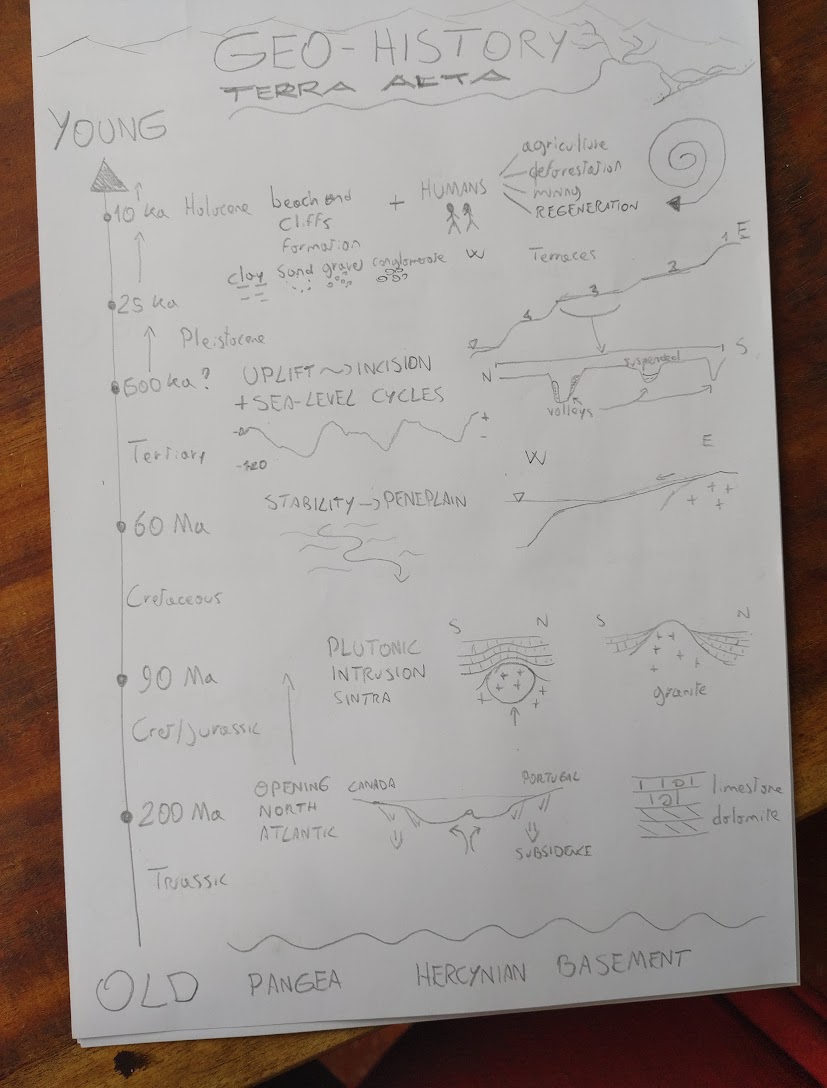 GEO-HISTORY
TERRA ALTA
YOUNG
10 ka Holocene beach and
cliffs
formation
+ HUMANS
agriculture
deforestation
mining
REGENERATION
clay sand gravel conglomerate
W Terraces E
1
2
3
4
25 ka
Pleistocene
500 ka? UPLIFT → INCISION
+ SEA-LEVEL CYCLES
N suspended S
valleys
+
-
-0
-120
Tertiary
W E
STABILITY → PENEPLAIN
60 Ma
Cretaceous
S N
S N
PLUTONIC
INTRUSION
SINTRA
granite
90 Ma
Cret/Jurassic
OPENING
NORTH
ATLANTIC
CANADA PORTUGAL
SUBSIDENCE
limestone
dolomite
200 Ma
Triassic
OLD PANGEA HERCYNIAN BASEMENT